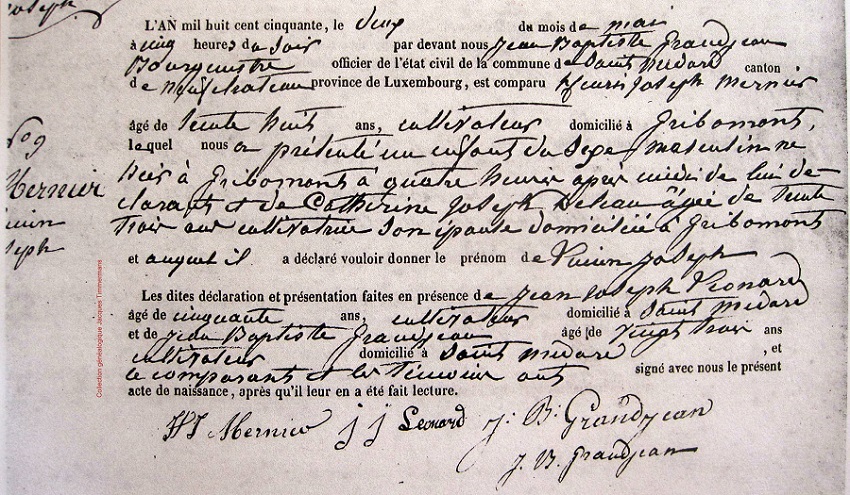 Joseph
L'AN mil huit cent cinquante, le deux du mois de mai
à cinq heures du soir par devant nous Jean Baptiste Grandjean
Bourgmestre officier de l'état civil de la commune de Saint Médard canton
de Neufchateau province de Luxembourg, est comparu Henri Joseph Mernier
âgé de trente huit ans, cultivateur domicilié à Gribomont,
lequel nous a présenté un enfant du sexe masculin né
hier à Gribomont à quatre heures après midi de lui dé-
clarant et de Catherine Joseph âgée de trente
trois ans cultivatrice son épouse domiciliée à Gribomont
et auquel il a déclaré vouloir donner le prénom de Joseph
Les dites déclaration et présentation faites en présence de Jean Joseph Léonard
âgé de cinquante ans, cultivateur domicilié à Saint Médard
et de Jean Baptiste Grandjean âgé de vingt trois ans
cultivateur domicilié à Saint Médard , et
le comparant et les témoins ont signé avec nous le présent
acte de naissance, après qu'il leur en a été fait lecture.
HJ Mernier j j Leonard J. B. Grandjean
J. B. Grandjean
No 9
Mernier
Joseph
Collection généalogique Jacques Timmermans